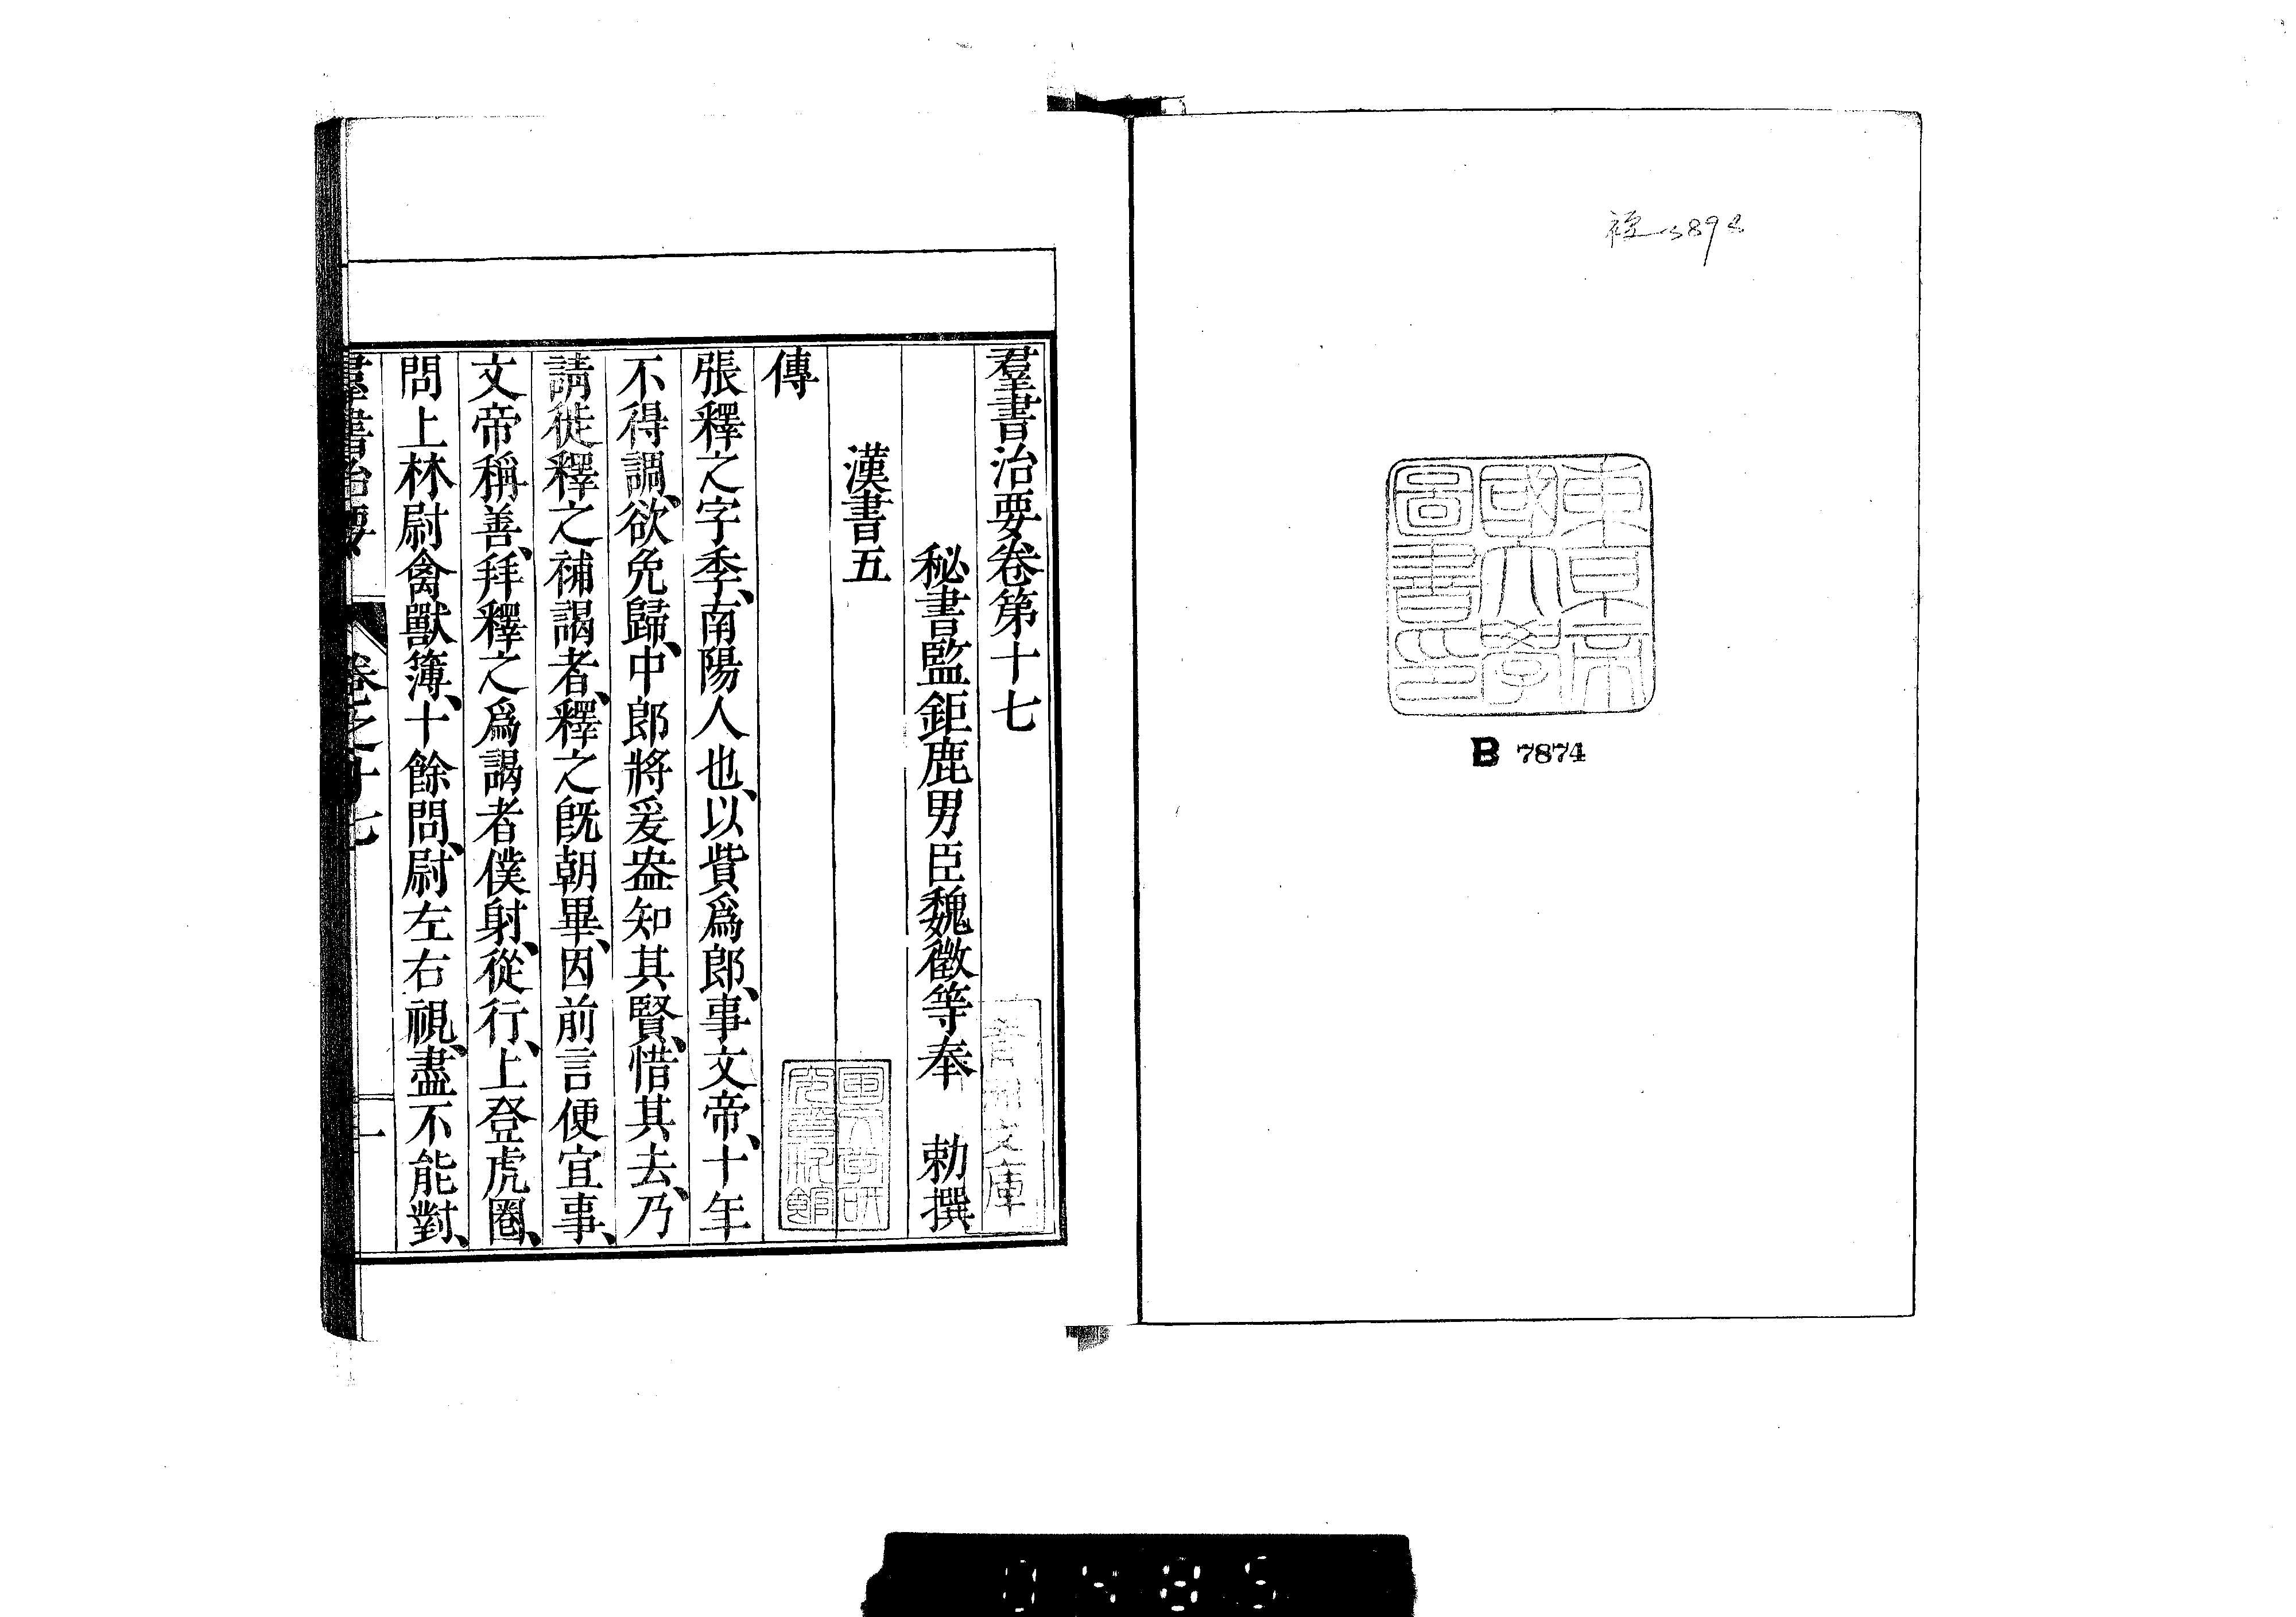 東京帝
國大學
圖書印
B 7874
羣書治要卷第十七
秘書監鉅鹿男臣魏徵等奉　勅撰
漢書五
傳
張釋之字季、南陽人也、以貲爲郎、事文帝、十年
不得調、欲免歸、中郎將爰盎知其賢、惜其去、乃
請徙釋之補謁者、釋之既朝畢、因前言便宜事、
文帝稱善、拜釋之爲謁者僕射、從行、上登虎圈、
問上林尉禽獸簿、十餘問、尉左右視、盡不能對、
羣書治要　卷之十七　一
青洲文庫